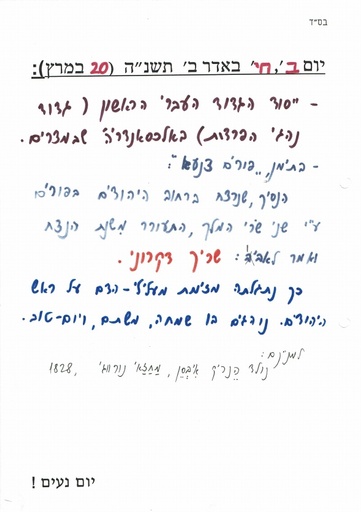 בס״ד
יום ב', חי' באדר ב' תשנ״ה (20 במרץ):
- ייסוד הגדוד העברי הראשון (גדוד
נהגי הפרדות) באלכסאנדריה שבמצרים.
- בתימן, "פורים צנעא":
הנסיך, שנרצח ברחוב היהודים בפורים
ע״י שני שרי המלך, התעורר משנת הנצח
ואמר לאביו: שריך דקרוני.
כך נתגלתה מזימת עלילת-הדם על ראש
היהודים. נוהגים בו שמחה, משתה, ויום-טוב.
למניינם:
נולד הנריק איבסן, מחזאי נורווגי, 1828
יום נעים!